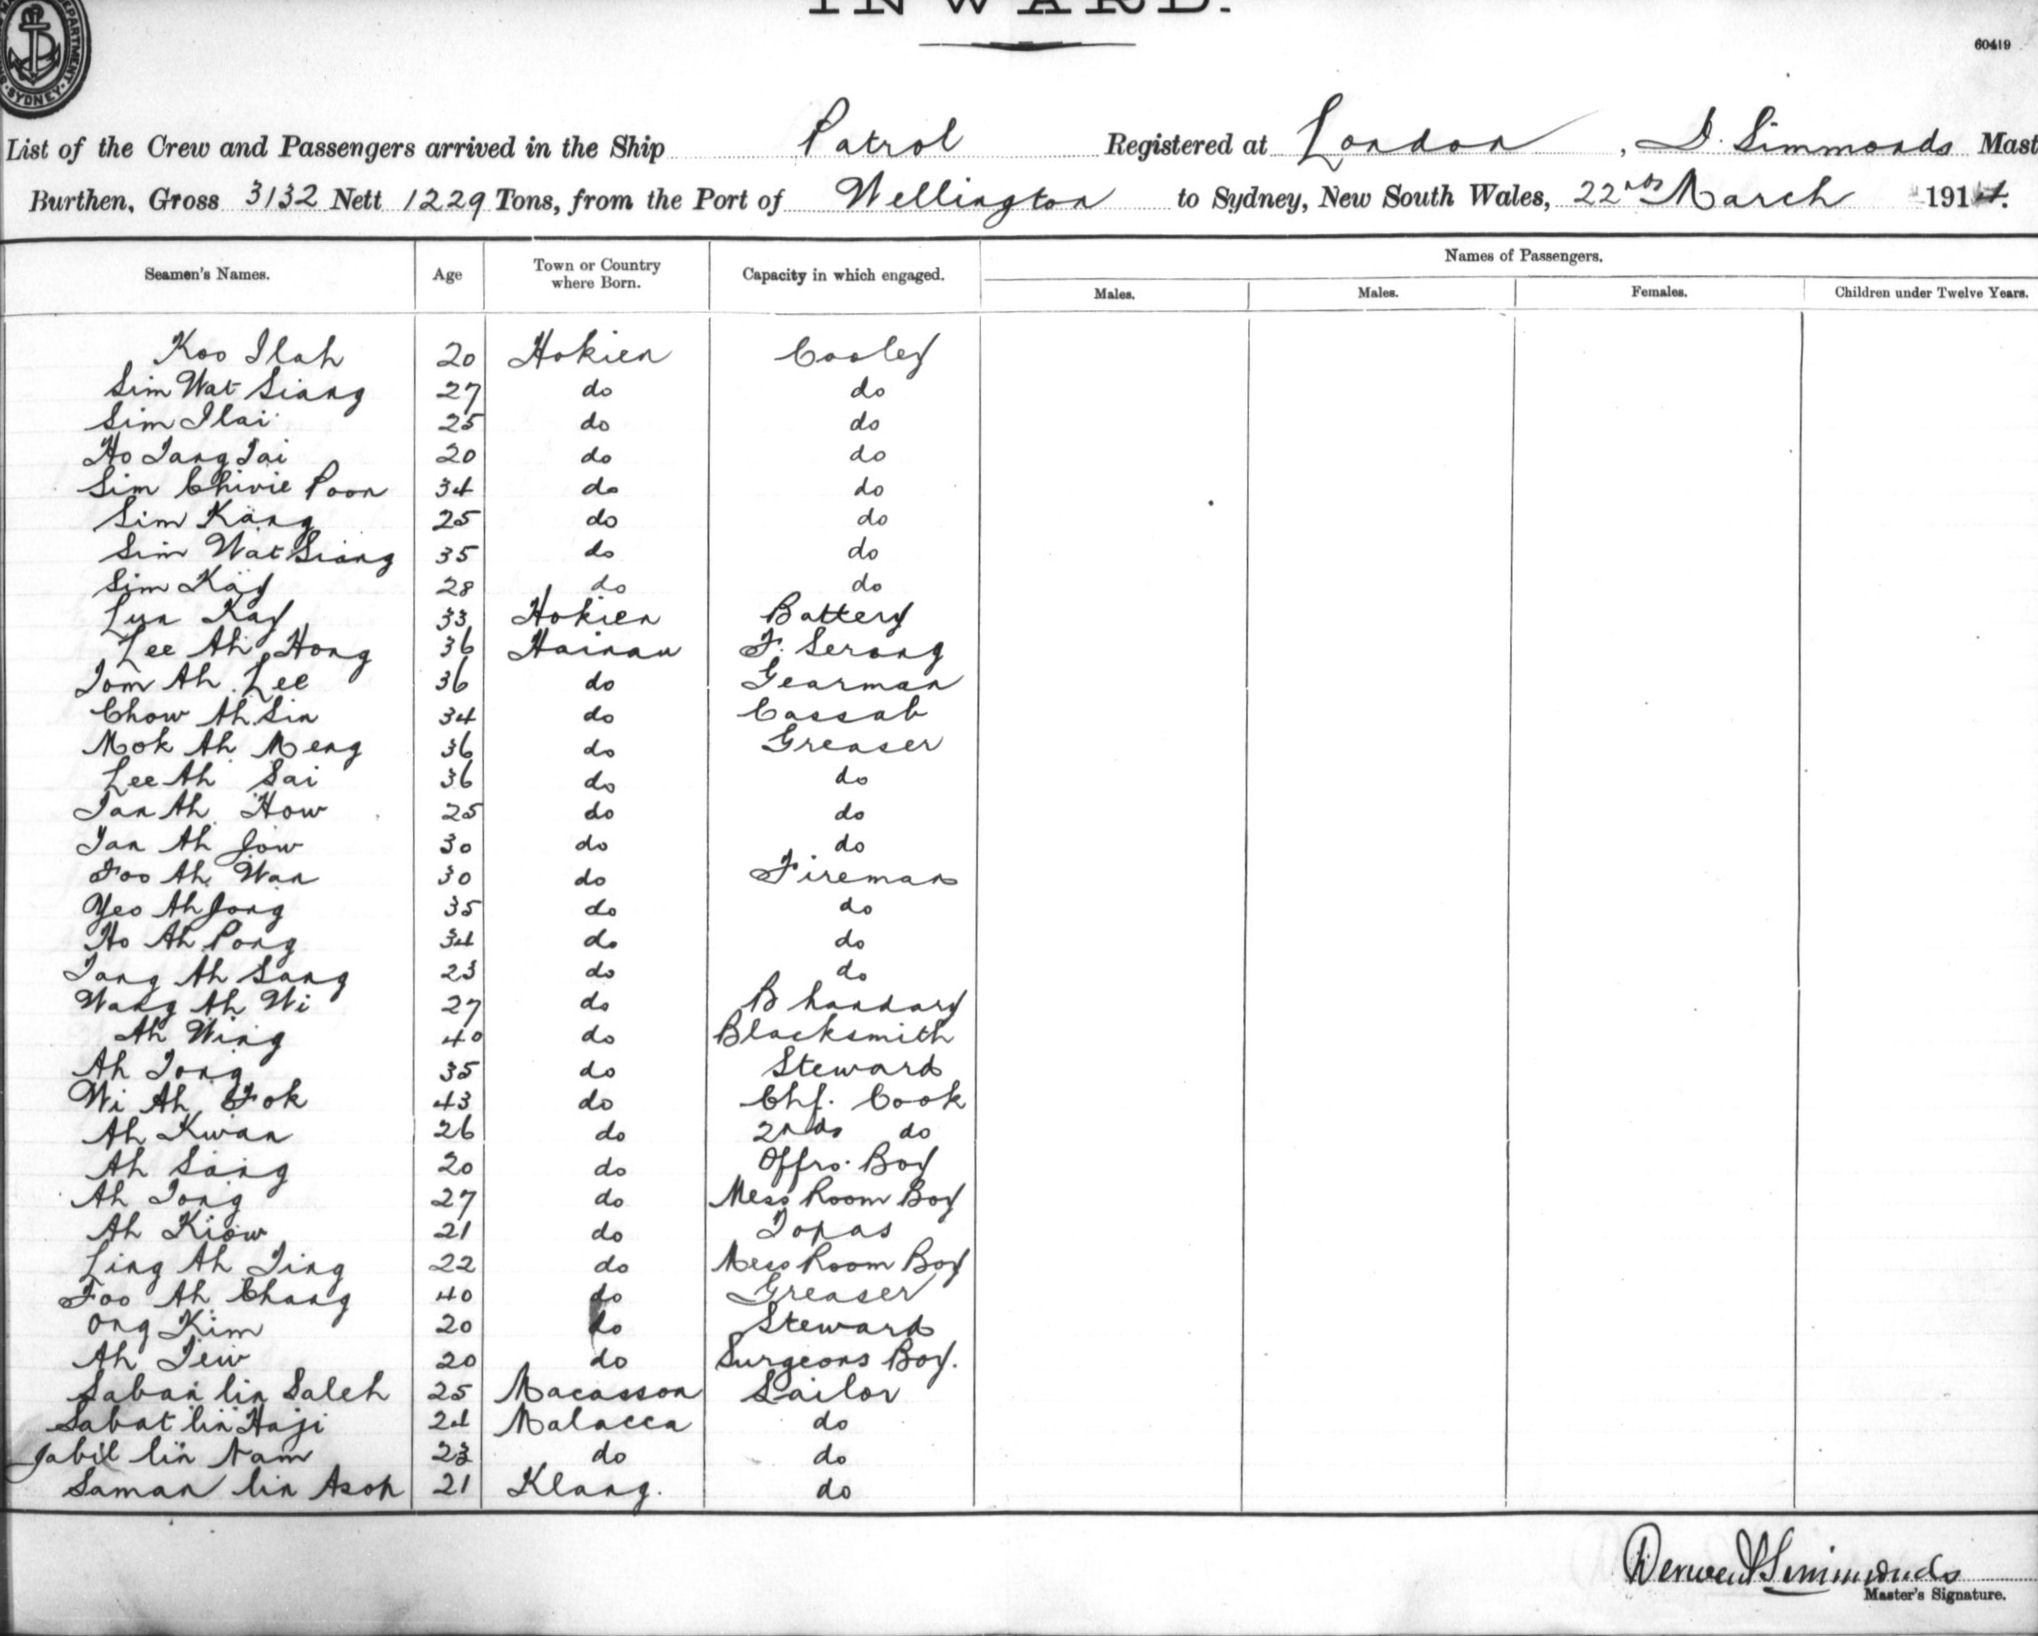 INWARD.
60419
SYDNEY
List of the Crew and Passengers arrived in the Ship Patrol Registered at London, D. Simmonds Mast
Burthen, Gross 3132 Nett 1229 Tons, from the Port of Wellington to Sydney, New South Wales, 22nd March 1914.
Names of Passengers.
Seamen's Names. Age Town or Country where Born. Capacity in which engaged. Males. Males. Females. Children under Twelve Years.
Koo Ilah 20 Hokien Cooley
Sim Wat Siang 27 do do
Sim Ilai 25 do do
Ho Tang Tai 20 do do
Sim Chivie Poon 34 do do
Sim Kang 25 do do
Sim Wat Siang 35 do do
Sim Kay 28 do do
Lun Kay 33 Hokien Battery
Lee Ah Hong 36 Hainan F. Serang
Tom Ah Lee 36 do Gearman
Chow Ah Sin 34 do Cassab
Mok Ah Meng 36 do Greaser
Lee Ah Sai 36 do do
Tan Ah How 25 do do
Tan Ah Jow 30 do do
Foo Ah Wan 30 do Fireman
Yeo Ah Jong 35 do do
Ho Ah Pong 34 do do
Tang Ah Sang 23 do do
Wang Ah Wi 27 do Bhandary
Ah Wing 40 do Blacksmith
Ah Tong 35 do Steward
Wi Ah Fok 43 do Chf. Cook
Ah Kwan 26 do 2nd do
Ah Sang 20 do Offrs. Boy
Ah Tong 27 do Mess Room Boy
Ah Kiow 21 do Topas
Ling Ah Ting 22 do Mess Room Boy
Foo Ah Chang 40 do Greaser
Ong Kim 20 do Steward
Ah Tew 20 do Surgeons Boy.
Saban bin Saleh 25 Macasson Sailor
Sabat bin Haji 24 Malacca do
Jabil bin Nam 23 do do
Saman bin Asop 21 Klang. do
Derwent Simmonds
Master's Signature.